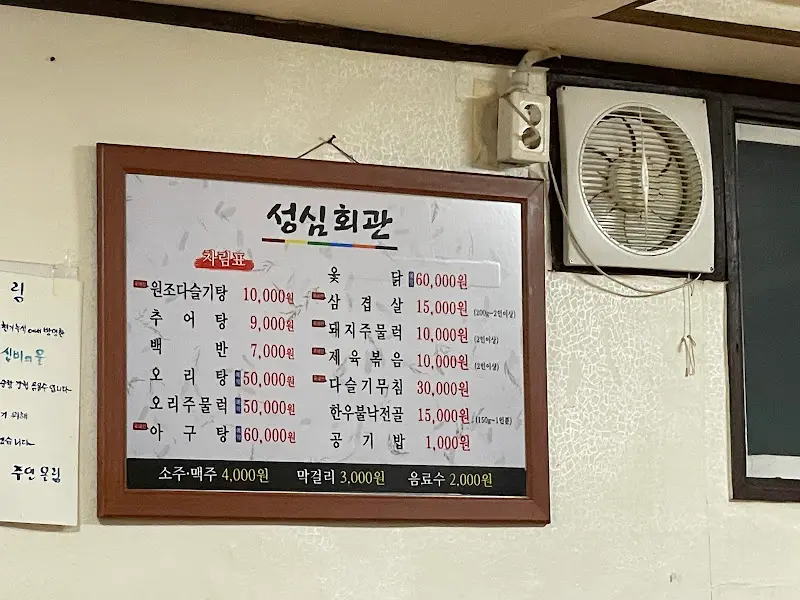 성심회관
차림표
원조다슬기탕 10,000원
추어탕 9,000원
백반 7,000원
오리탕 50,000원
오리주물럭 50,000원
아구탕 60,000원
옻닭 60,000원
삼겹살 15,000원 (200g-2인이상)
돼지주물럭 10,000원 (2인이상)
제육볶음 10,000원 (2인이상)
다슬기무침 30,000원
한우불낙전골 15,000원 (150g-1인분)
공기밥 1,000원
소주·맥주 4,000원 막걸리 3,000원 음료수 2,000원
림
신비의 물
주인 올림